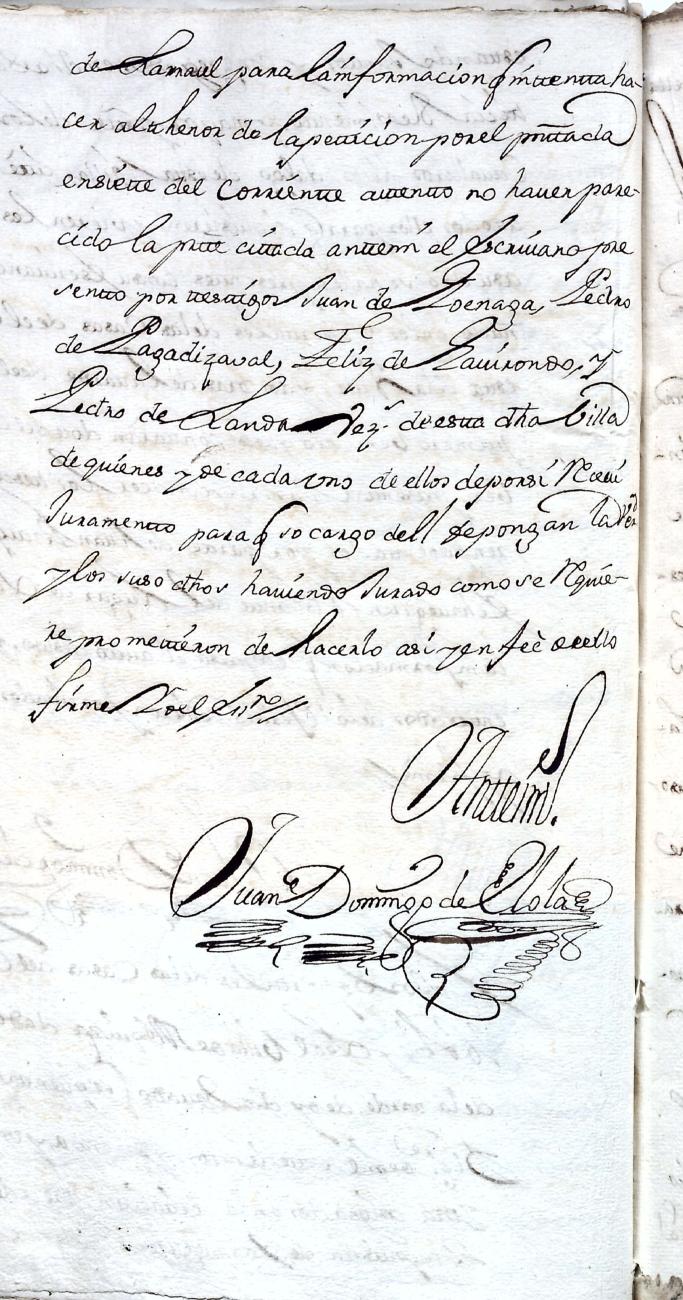 de Larraul para la informacion q̃ inttentta ha-
cer al thenor de la petticion por el pñttada
en siette del Corrientte attentto no haver pare-
cido la ptte cittada anttemi el Escrivano pre
sentto por testtigos Juan de Loenaga, Pedro
de Lagadizaval, Feliz de Lavirondo, y
Pedro de Landa Vez.s de estta dha Villa
de quienes y de cada uno de ellos de por si Recivi
Juramentto para q̃ so cargo dell depongan la Verd
y los suso dhos haviendo Jurado como se Requie-
re promettieron de hacerlo asi y en feè de ello
firme Yo el Ess.no //
Anttemi
Juan Domingo de Elola